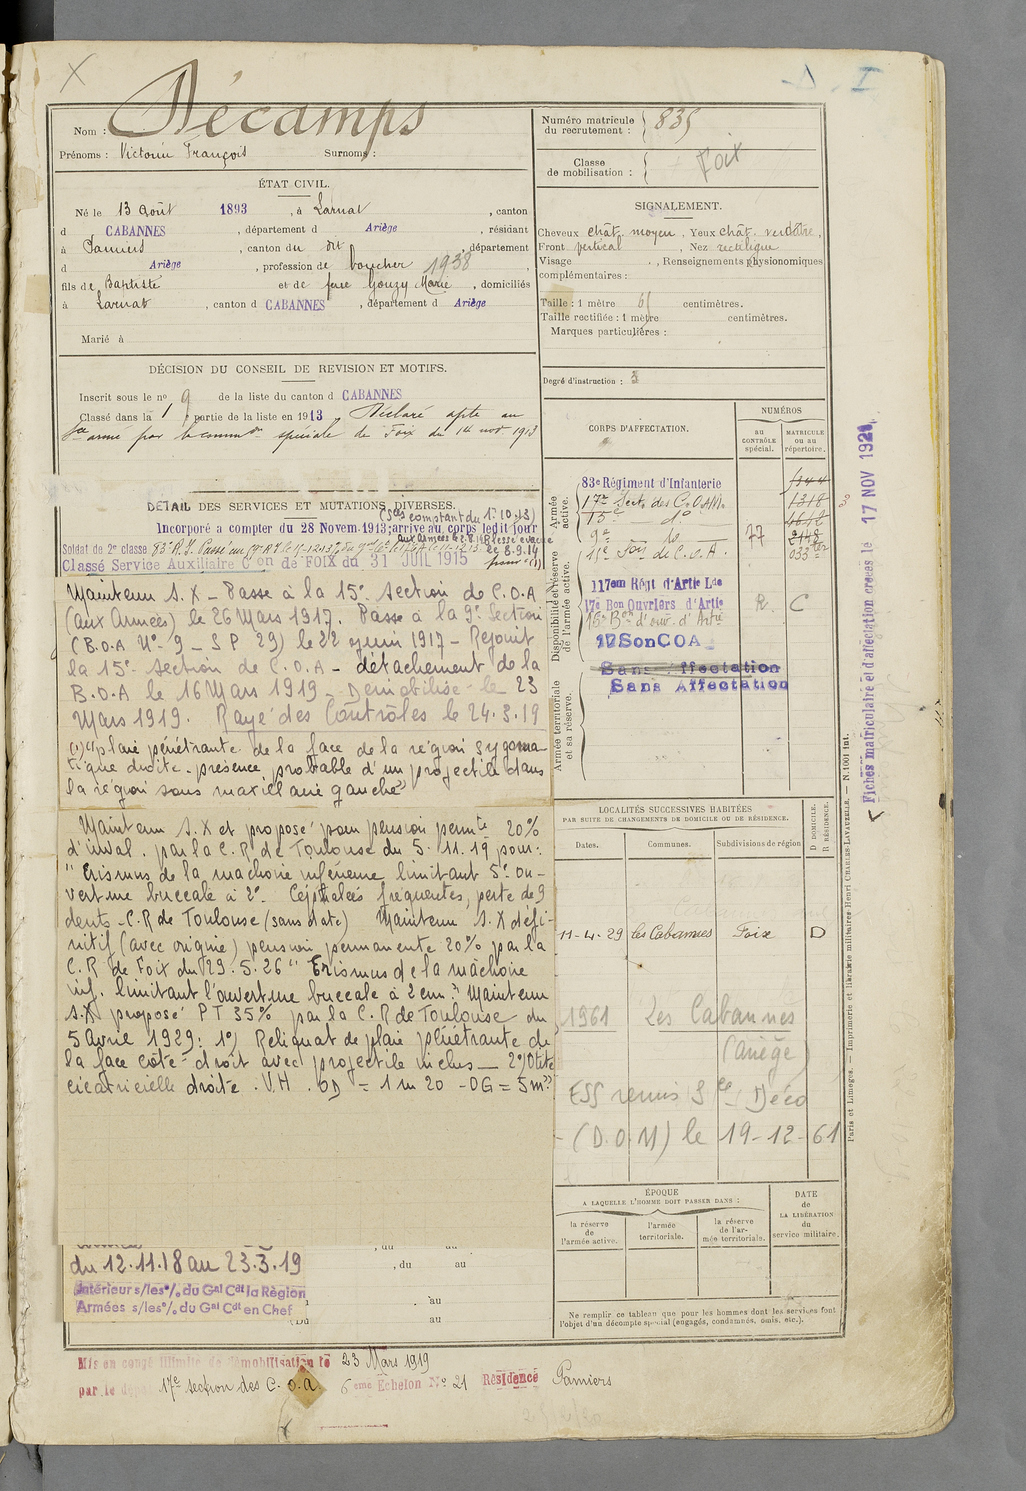 X
I
Nom : Décamps
Prénoms : Victorin François Surnoms :
ÉTAT CIVIL.
Né le 13 août 1893, à Larnat, canton
d CABANNES, département d Ariège, résidant
à Pamiers, canton du dit, département
d Ariège, profession de boucher 1938
fils de Baptiste et de feue Gouzy Marie, domiciliés
à Larnat, canton d CABANNES, département d Ariège
Marié à
DÉCISION DU CONSEIL DE REVISION ET MOTIFS.
Inscrit sous le n° 9 de la liste du canton d CABANNES
Classé dans la 1 partie de la liste en 1913 Déclaré apte au
sce armé par la common spéciale de Foix du 14 nov 1913
DÉTAIL DES SERVICES ET MUTATIONS DIVERSES.
(Sces comptant du 1-10-13)
Incorporé a compter du 28 Novem. 1913; arrivé au corps ledit jour
Soldat de 2e classe 83e R.I.
Classé Service Auxiliaire Con de FOIX du 31 JUIL 1915
Maintenu S.X – Passé à la 15e section de C.O.A
(aux Armées) le 26 Mars 1917. Passe à la 9e Section
(B.O.A N° 9 – S P 29) le 22 juin 1917 – Rejoint
la 15e section de C.O.A – détachement de la
B.O.A le 16 Mars 1919 – Démobilisé le 23
Mars 1919. Rayé des Contrôles le 24.3.19
(1) "plaie pénétrante de la face de la région zygoma
tique droite. présence probable d'un projectile dans
la région sous maxillaire gauche"
Maintenu S.X et proposé pour pension permte 20%
d'inval. par la C.R de Toulouse du 5.11.19 pour :
"Trismus de la machoire inférieure limitant 5° ou-
verture buccale à 2°. Céphalées fréquentes, perte de 9
dents – C.R de Toulouse (sans date) Maintenu S.X défi-
nitif (avec origine) pension permanente 20% par la
C.R de Foix du 29.5.26 "Trismus de la mâchoire
inf. limitant l'ouverture buccale à 2 cm." Maintenu
S.X proposé PT 35% par la C.R de Toulouse du
5 Avril 1929 : 1°) Reliquat de plaie pénétrante de
la face côté droit avec projectile inclus – 2°) Otite
cicatricielle droite. V.H. OD = 1 m 20 – OG = 5 m"
, du au
du 12.11.18 au 23.3.19
, du au
Intérieur s/les o/. du Gal Cdt la Région
Armées s/les o/. du Gal Cdt en Chef
au
(Du au
Mis en congé illimité de démobilisation le 23 Mars 1919
par le dépôt 17e section des C.O.A. 6eme Echelon N° 21 Résidence Pamiers
Numéro matricule
du recrutement : 835
Classe
de mobilisation : Foix
SIGNALEMENT.
Cheveux chât. moyen, Yeux chât. verdâtre,
Front vertical, Nez rectiligne
Visage , Renseignements physionomiques
complémentaires :
Taille : 1 mètre 61 centimètres.
Taille rectifiée : 1 mètre centimètres.
Marques particulières :
Degré d'instruction : 3
CORPS D'AFFECTATION.
NUMÉROS
au
CONTRÔLE
spécial.
MATRICULE
ou au
répertoire.
Armée
active.
83e Régiment d'Infanterie
17e Secton des C.O.A.M. 1318
15e do
9e do 77
15e Son de C.O.A. 033ter
Disponibilité et réserve
de l'armée active.
117em Régt d'Artie Lde
17e Bon Ouvriers d'Artie R. C
16e Bon d'ouv. d'Artie
17 Son COA
Sans Affectation
Sans Affectation
Armée territoriale
et sa réserve.
LOCALITÉS SUCCESSIVES HABITÉES
PAR SUITE DE CHANGEMENTS DE DOMICILE OU DE RÉSIDENCE.
Dates.
Communes.
Subdivisions de région
D DOMICILE.
R RÉSIDENCE.
11-4-29 les Cabannes Foix D
1961 Les Cabannes
(Ariège)
ESS remis Sce Déco
(D.O.M) le 19-12-61
ÉPOQUE
A LAQUELLE L'HOMME DOIT PASSER DANS :
la réserve
de
l'armée active.
l'armée
territoriale.
la réserve
de l'ar-
mée territoriale.
DATE
de
LA LIBÉRATION
du
service militaire.
Ne remplir ce tableau que pour les hommes dont les services font
l'objet d'un décompte spécial (engagés, condamnés, omis, etc.).
Paris et Limoges. — Imprimerie et librairie militaires Henri CHARLES-LAVAUZELLE. — N. 1001 int.
Fiches matriculaire et d'affectation créées le 17 NOV 192